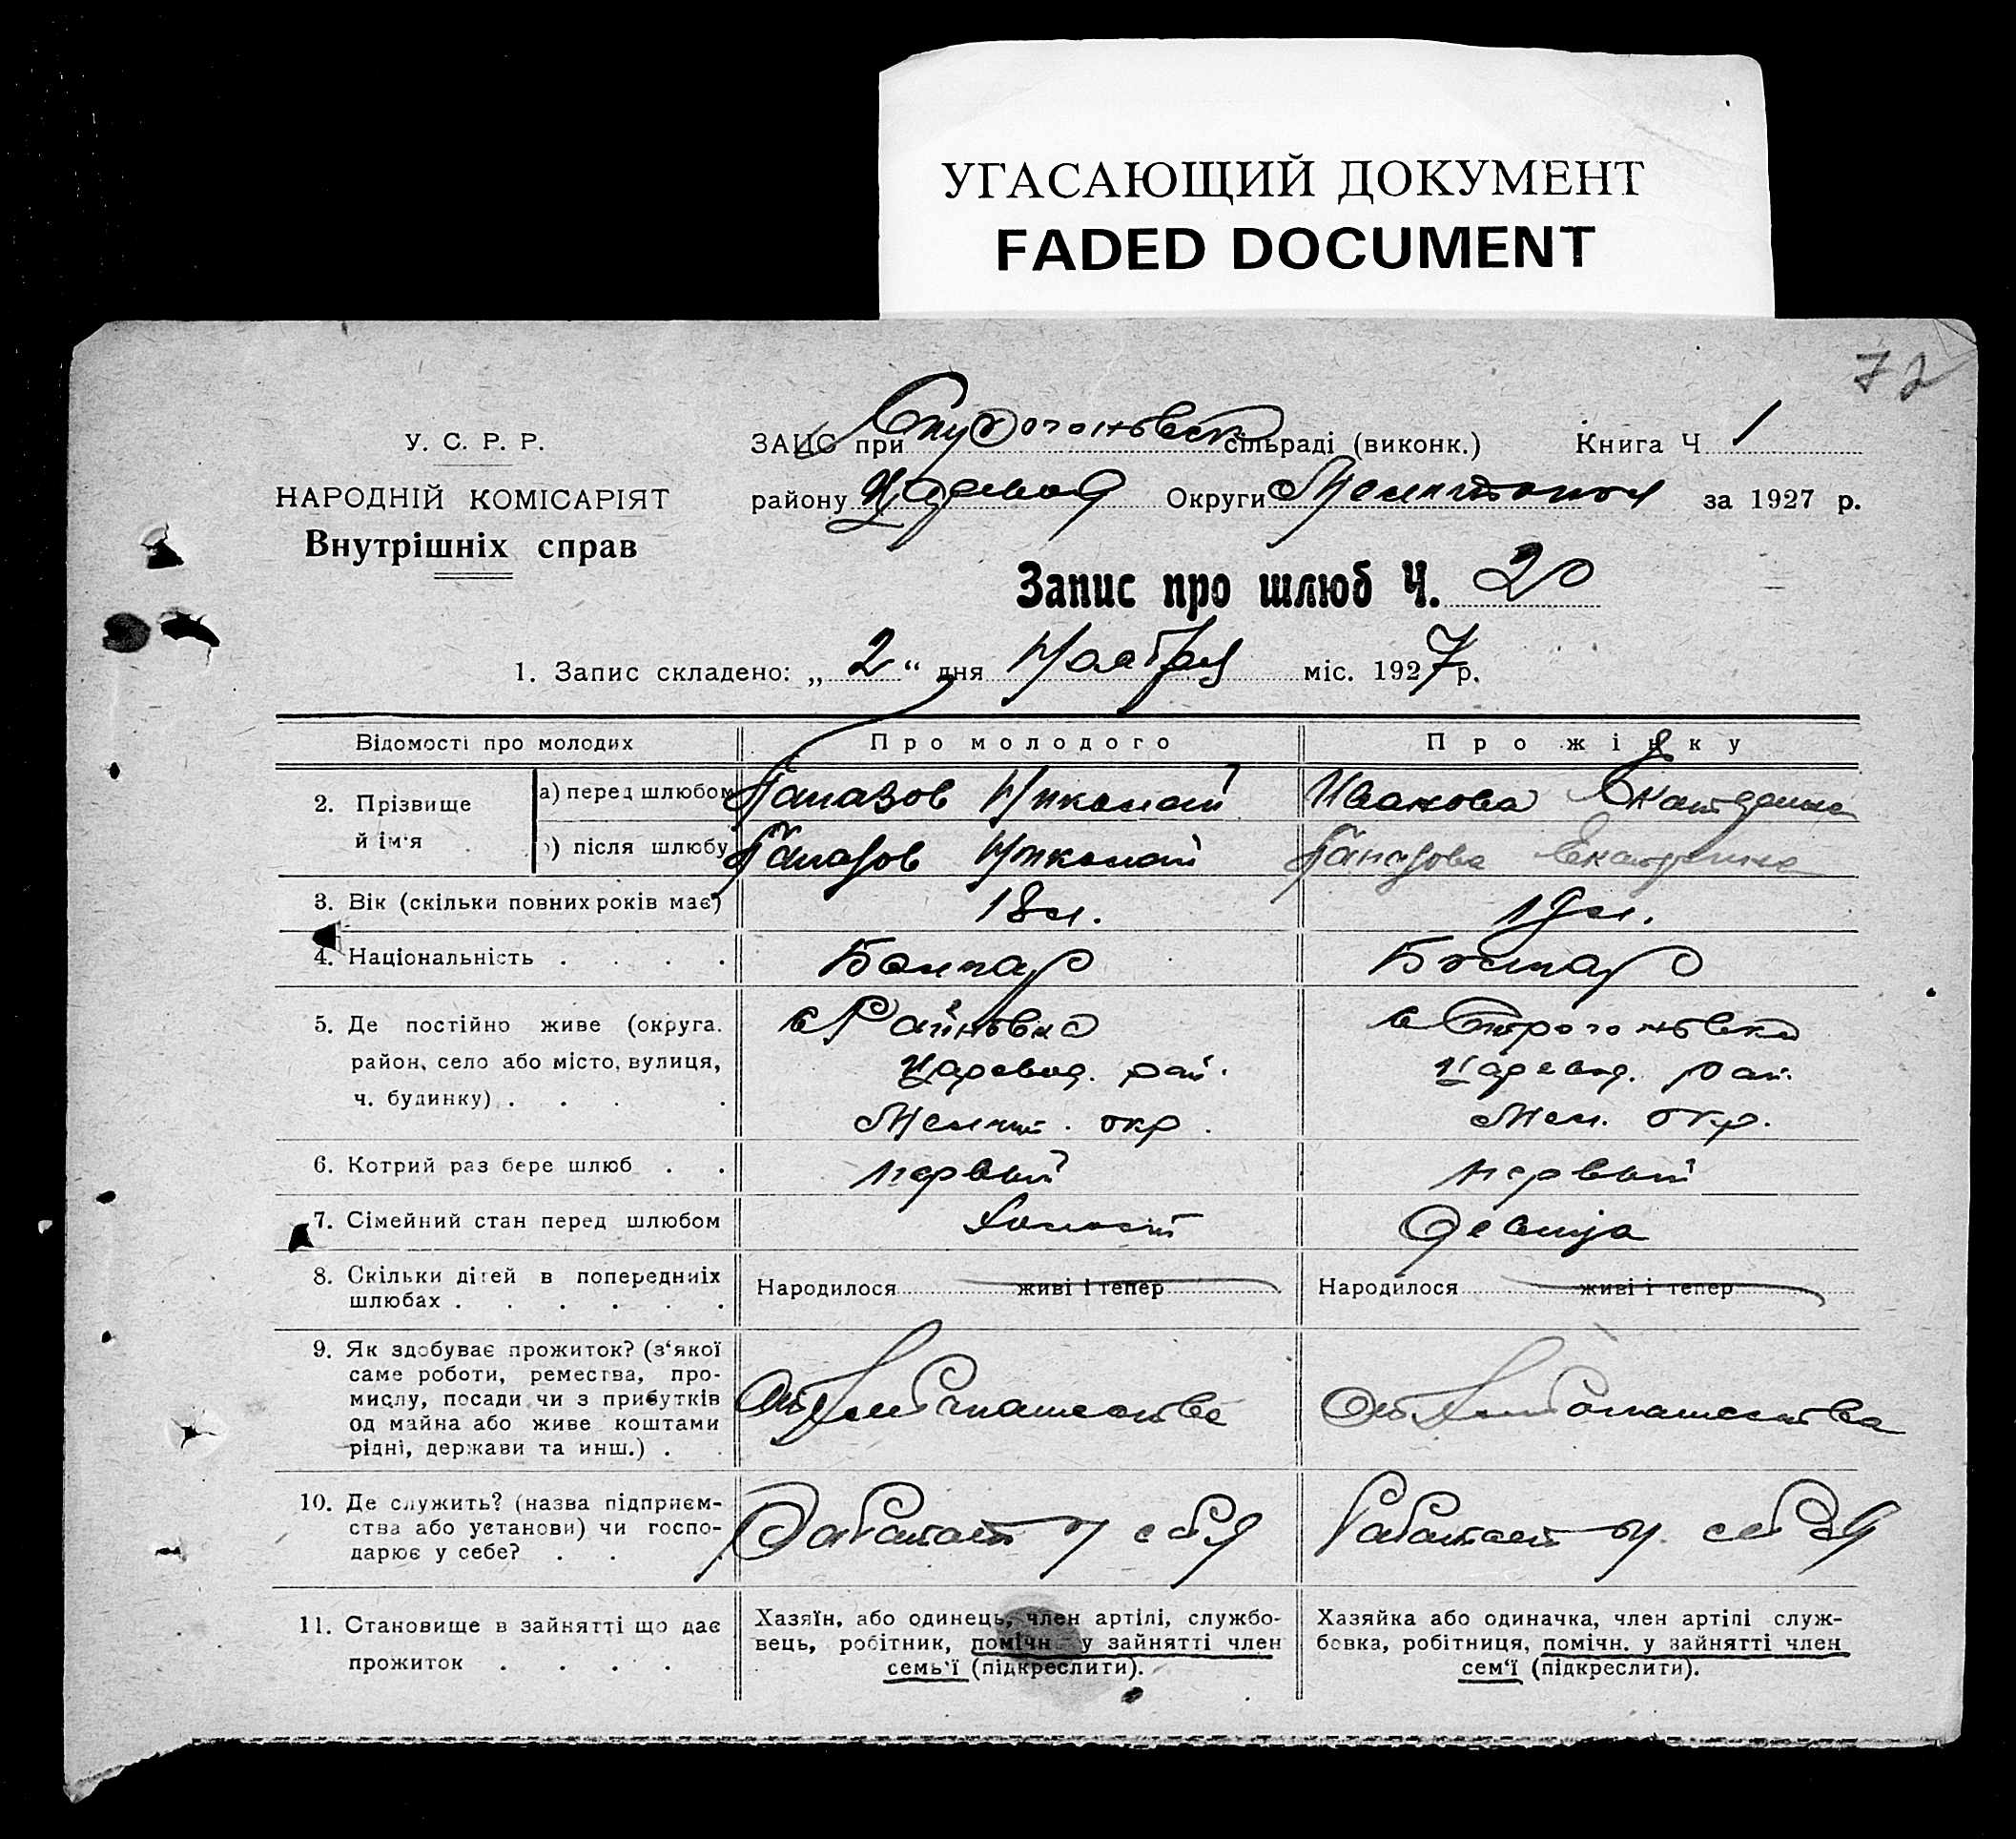 УГАСАЮЩИЙ ДОКУМЕНТ
FADED DOCUMENT
72
У. С. Р. Р.
НАРОДНІЙ КОМІСАРІЯТ
Внутрішніх справ
ЗАЦС при сільраді (виконк.) Книга Ч 1
району Царевод Округи за 1927 р.
Запис про шлюб Ч. 20
1. Запис складено: „ 2 “ дня Ноября міс. 1927 р.
Відомості про молодих Про молодого Про жінку
2. Прізвище й ім‘я
а) перед шлюбом Папазов Николай Иванова Екатерина
б) після шлюбу Папазов Николай Папазова Екатерина
3. Вік (скільки повних років має) 18 л. 19 л.
4. Національність . . . . Болгар Болгар
5. Де постійно живе (округа, с Райновка с Строгоновка
район, село або місто, вулиця, Царевод. рай. Царевод. рай.
ч. будинку) . . . . Мелит. окр. Мел. окр.
6. Котрий раз бере шлюб . . первый первый
7. Сімейний стан перед шлюбом Холост Девица
8. Скільки дітей в попередниіх Народилося живі і тепер Народилося живі і тепер
шлюбах . . . . . .
9. Як здобуває прожиток? (з‘якої
саме роботи, ремества, про-
мислу, посади чи з прибутків От Хлебопашества От Хлебопашества
од майна або живе коштами
рідні, держави та инш.) . .
10. Де служить? (назва підприєм-
ства або установи) чи госпо- Работает у себя Работает у себя
дарює у себе? . . .
11. Становище в зайнятті що дає Хазяїн, або одинець, член артілі, службо- Хазяйка або одиначка, член артілі служ-
вець, робітник, помічн. у зайнятті член бовка, робітниця, помічн. у зайнятті член
прожиток . . . . семь‘ї (підкреслити). сем‘ї (підкреслити).